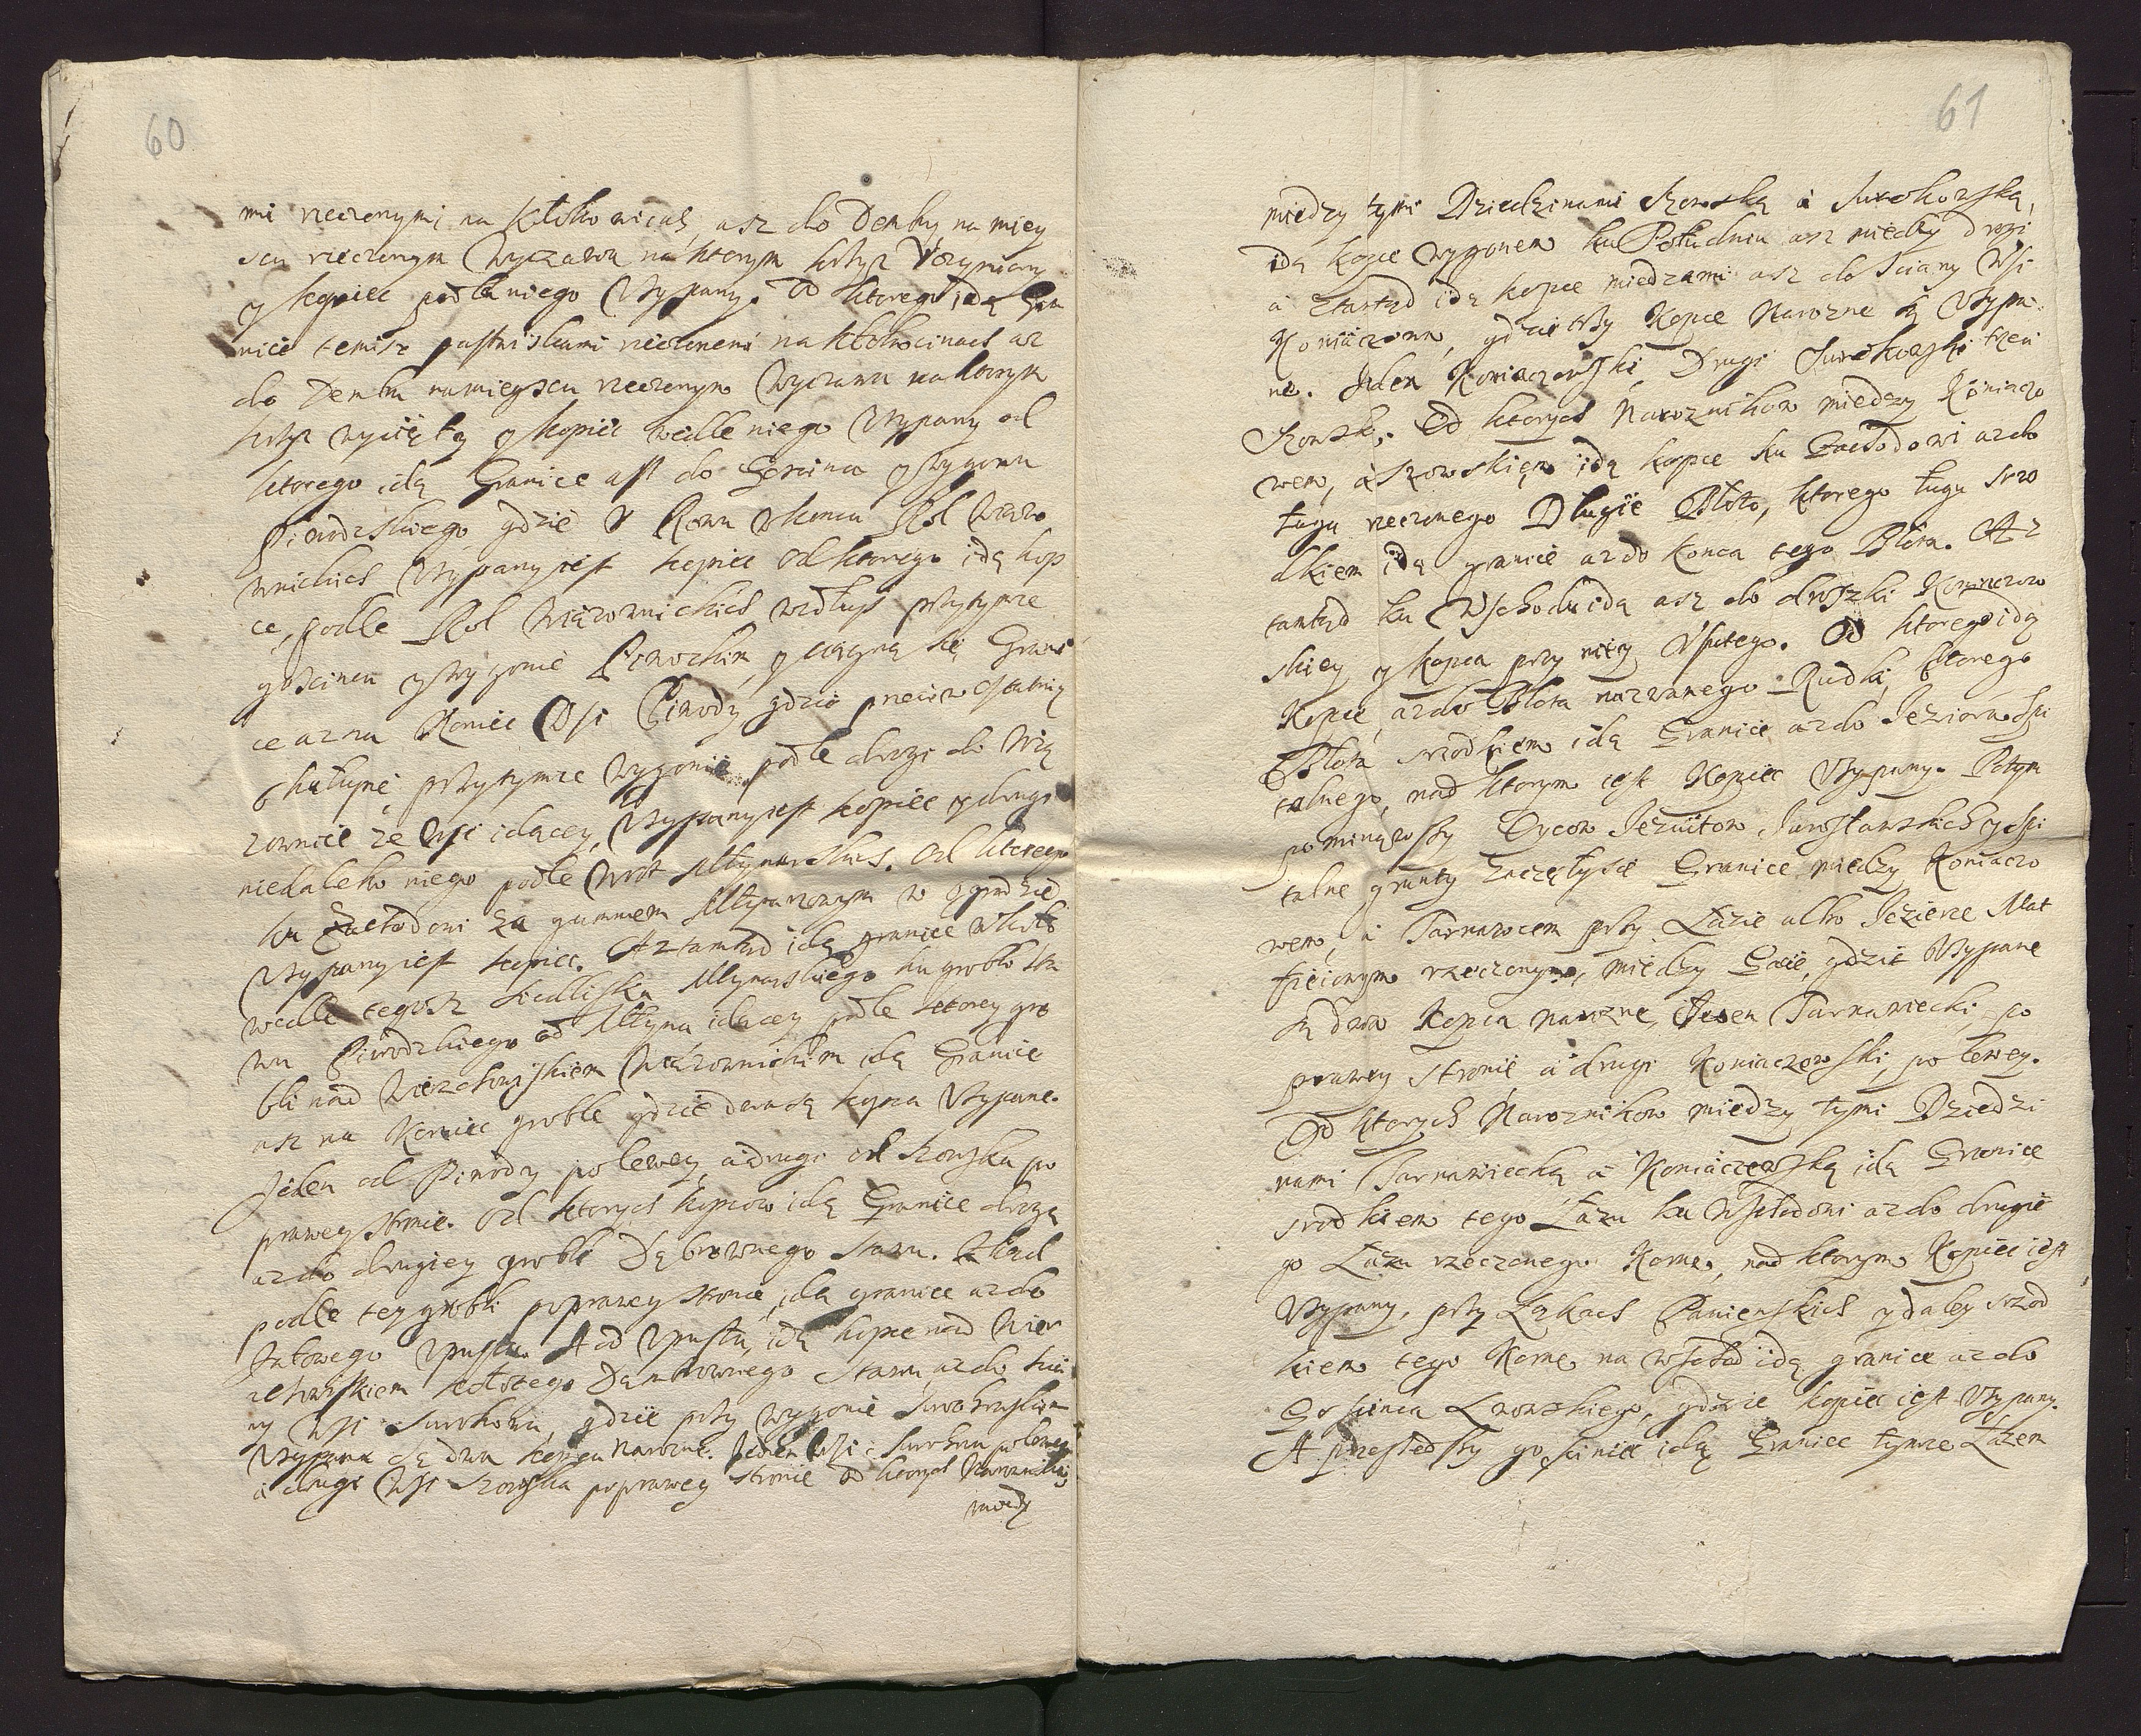 60
mi rzeczonymi na Kłokowicach, asz do Demby na miey
scu rzeczonym Wyczawa na ktorym krzysz Vczyniony
y kopiec podle niego Vsypany. Od ktorego idą Gra
nice temisz pastwiskami rzeczonemi na Kłokocinach az
do Dembu na mieyscu rzeczonym Wyczawa na ktorym
krzysz wycięty y kopiec wedle niego Vsypany od
ktorego idą Granice asz do Goscinca y Wygonu
Piwodzkiego, gdzie V Rowu V konca Rol Wiązo
wnickich Vsypany iest kopiec od ktorego idą kop
ce, podle Rol Wiązownickich wzdłusz przy tymze
goscincu y Wygonie Piwockim, y ciągną się Grani
ce az na Koniec Wsi Piwody gdzie przeciw ostatniey
chałupie, przy tymze wygonie podle drogi do Wią
zownice ze Wsi idącey, Vsypany iest kopiec y drugi
niedaleko niego podle Wrot Młynarskich. Od ktorego
ku Zachodowi za gumnem Młynarzowym w ogrodzie
Vsypany iest kopiec. A ztamtąd idą granice
wedle tegosz siedliska Młynarskiego ku grobli sta
wu Piwodzkiego od Młyna idącey podle ktorey gro
bli nad Wierzchowiskiem Wiązownickim idą Granice
asz na Koniec groble gdzie dwa są kopca Vsypane.
Jeden od Piwody po lewey, a drugi od Szowska po
prawey stronie. Od ktorych kopcow idą Granice drogą
az do drugiey grobli Dąbrownego Stawu. Zkąd
podle tey grobli po prawey stronie idą granice az do
Jałowego Vpustu. A od Vpustu, idą kopce nad Wierz
chowiskiem tegosz Dąmbrownego Stawu, az do scia
ny Wsi Surochowa, gdzie przy wygonie Surochowskim
Vsypane są dwa kopca narozne. Jeden Wsi Surochowa po lewey
a drugi Wsi Szowska po prawey stronie od ktorych Naroznikow
miedzy
61
miedzy tymi Dziedzinami Szowską a Surochowską,
idą kopce wygonem ku Południu asz miedzy drogi
a ztamtąd idą kopce miedzami asz do Sciany Wsi
Koniaczowa, gdzie trzy Kopce Narozne są Vsypa
ne. Jeden Koniaczowski, Drugi Surochowski trzeci
Szowski. Od ktorych Naroznikow miedzy Koniaczo
wem, a Szowskiem idą kopce ku Zachodowi az do
Ługu rzeczonego Długie Błoto, ktorego Ługu srzo
dkiem idą granice az do Konca tego Błota. A z
tamtąd ku Wschodu idą asz do drozki Koniaczow
skiey y kopca przy niey Vsutego. Od ktorego idą
Kopce, az do Błota nazwanego Rudki, ktorego
Błota srzodkiem idą Granice az do Jeziora Szpi
talnego, nad ktorym iest Kopiec Vsypany. Potym
pominąwszy Oycow Jezuitow Jarosławskich y Szpi
talne grunty Zaczęły się Granice miedzy Koniaczo
wem, a Tarnawcem przy Łazie albo Jezierze Mat
fieiowym rzeczonym, miedzy Gaie, gdzie Vsypane
są dwa Kopca narozne, Jeden Tarnawiecki, po
prawey stronie a drugi Koniaczowski, po lewey.
Od ktorych Naroznikow miedzy tymi Dziedzi
nami Tarnawiecką a Koniaczowską idą Granice
srodkiem tego Łazu ku Wschodowi az do drugie
go Łazu rzeczonego Korne, nad ktorym Kopiec iest
Vsypany, przy Łąkach Panienskich y daley srzod
kiem tego Korne na wschod idą granice az do
Goscinca Lwowskiego, gdzie kopiec iest Vsypany.
A przeszedszy gosciniec idą Granice tymze Łazem